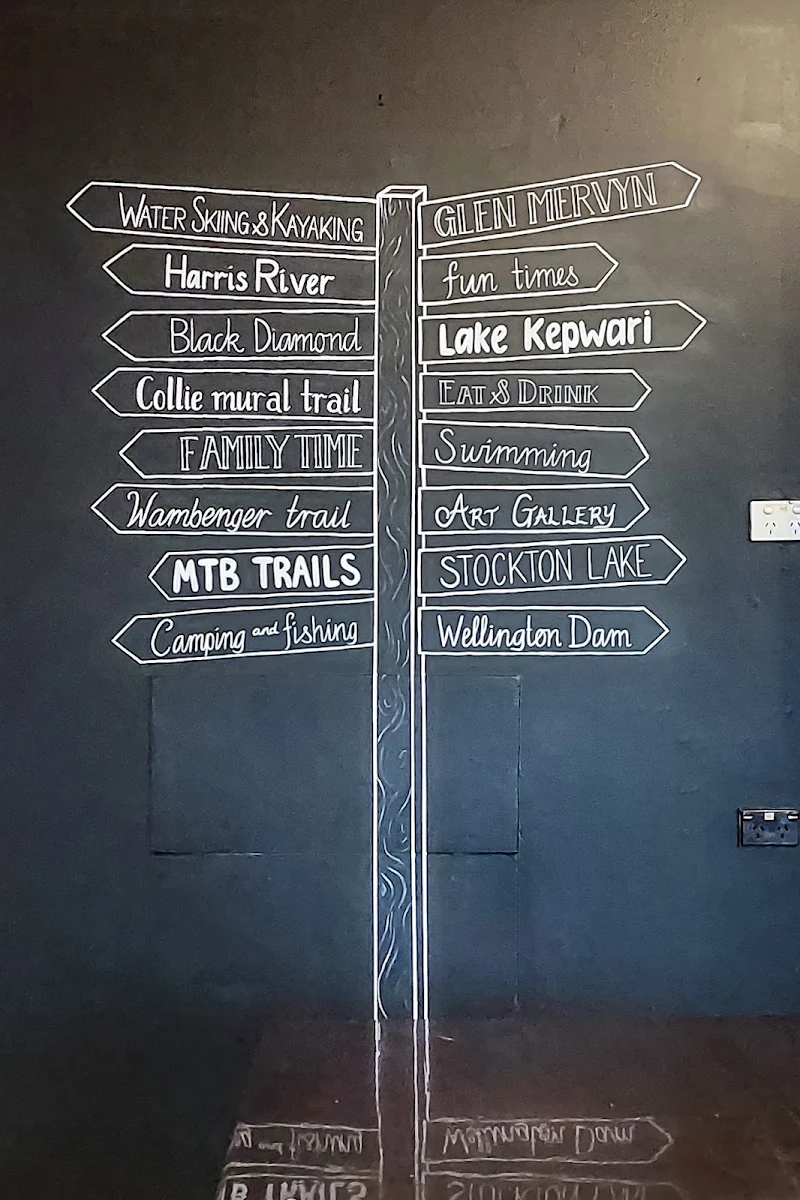 Water Skiing & Kayaking
Harris River
Black Diamond
Collie mural trail
FAMILY TIME
Wambenger trail
MTB TRAILS
Camping and fishing
GLEN MERVYN
fun times
Lake Kepwari
Eat & Drink
Swimming
Art Gallery
STOCKTON LAKE
Wellington Dam